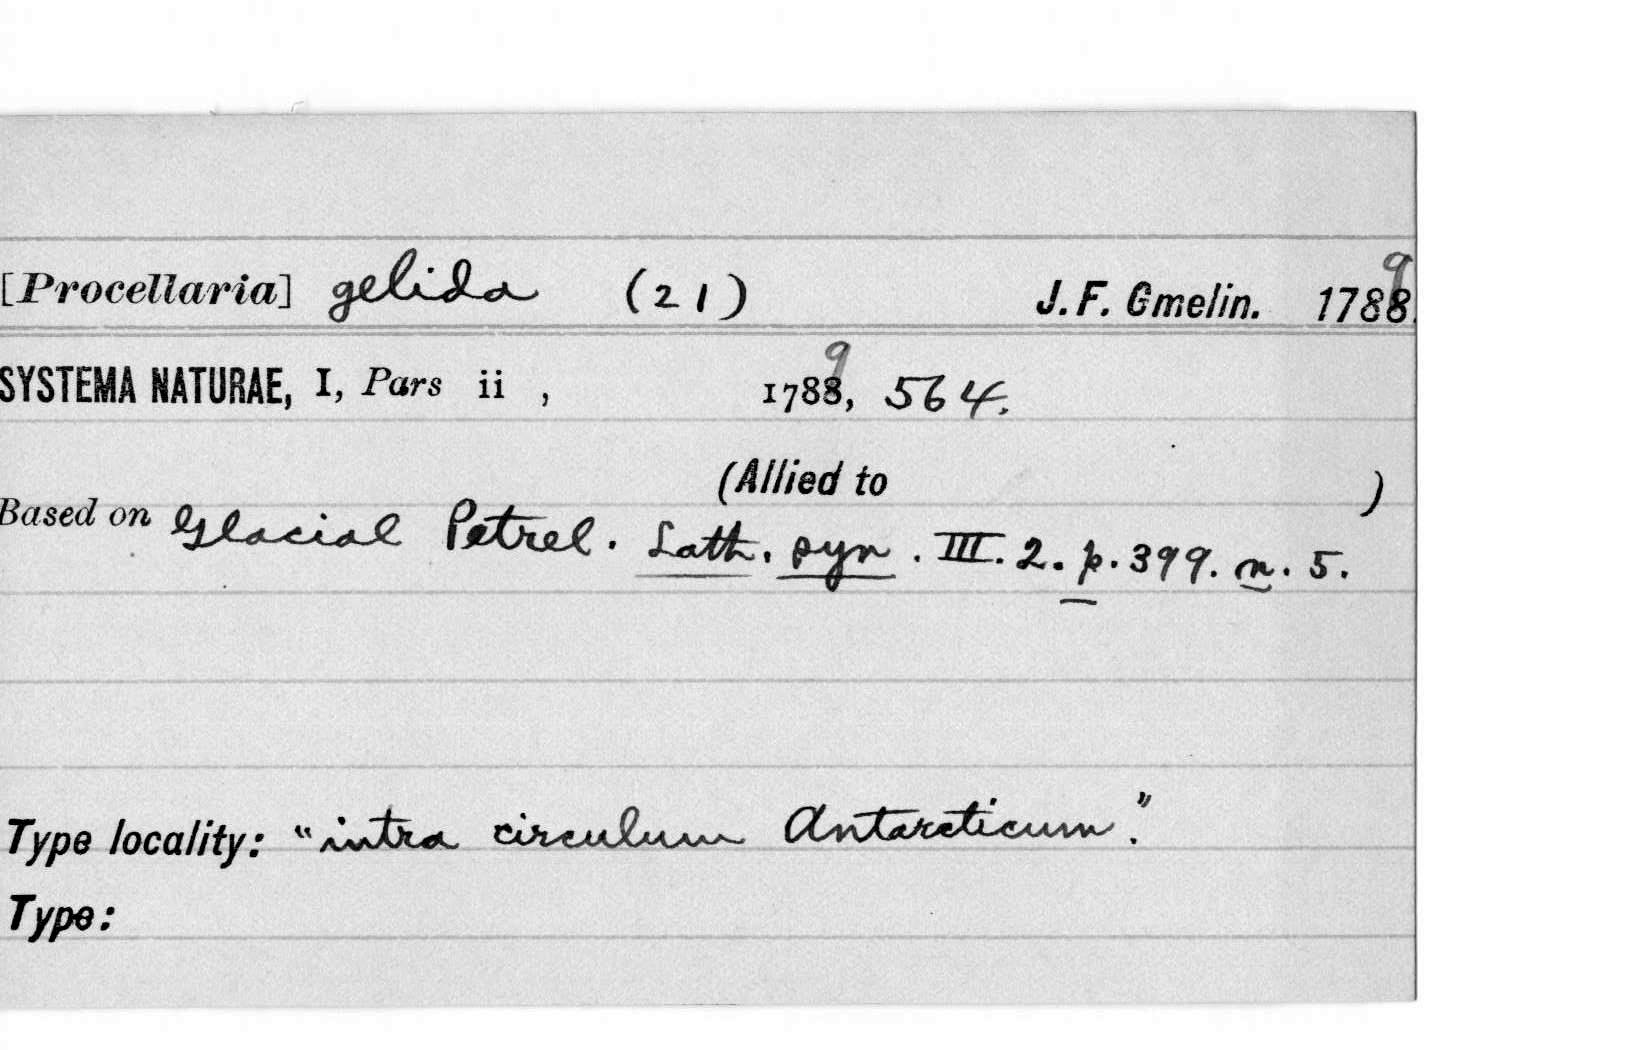 [Procellaria] gelida (21) J. F. Gmelin. 1788 9
SYSTEMA NATURAE, I, Pars ii , 1788 9, 564.
(Allied to )
Based on Glacial Petrel. Lath. syn. III. 2. p. 399. n. 5.
Type locality: "intra circulum Antarcticum."
Type: